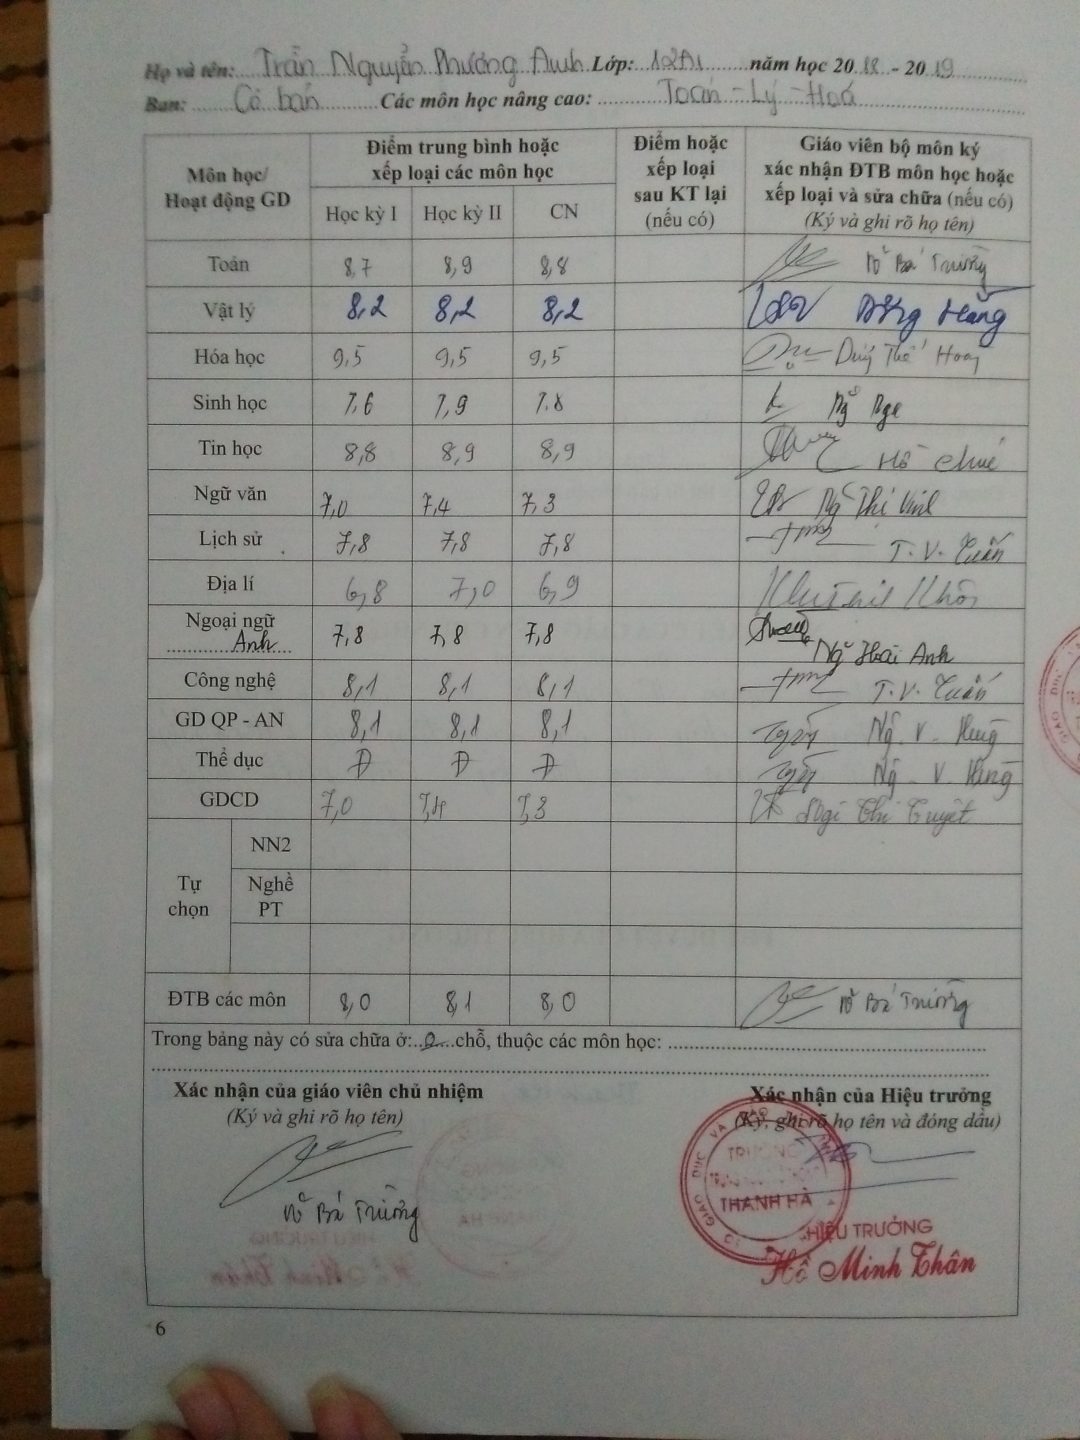 Họ và tên: Trần Nguyễn Phương Anh Lớp: 12A1 năm học 2018 - 2019
Ban: Cơ bản Các môn học nâng cao: Toán - Lý - Hoá
Môn học/ Hoạt động GD
Điểm trung bình hoặc xếp loại các môn học
Điểm hoặc xếp loại sau KT lại (nếu có)
Giáo viên bộ môn ký xác nhận ĐTB môn học hoặc xếp loại và sửa chữa (nếu có) (Ký và ghi rõ họ tên)
Học kỳ I Học kỳ II CN
Toán 8,7 8,9 8,8 Võ Bá Trường
Vật lý 8,2 8,2 8,2 Hằng
Hóa học 9,5 9,5 9,5 Thế
Sinh học 7,6 7,9 7,8 Ng
Tin học 8,8 8,9 8,9 Hồ
Ngữ văn 7,0 7,4 7,3 Ng Thị
Lịch sử 7,8 7,8 7,8 T.V. Tuấn
Địa lí 6,8 7,0 6,9
Ngoại ngữ Anh 7,8 7,8 7,8 Ng Hoài Anh
Công nghệ 8,1 8,1 8,1 T.V. Tuấn
GD QP - AN 8,1 8,1 8,1 Ng. V. Hùng
Thể dục Đ Đ Đ Ng. V. Hùng
GDCD 7,0 7,4 7,3 Thị Tuyết
Tự chọn
NN2
Nghề PT
ĐTB các môn 8,0 8,1 8,0 Võ Bá Trường
Trong bảng này có sửa chữa ở: 0 chỗ, thuộc các môn học:
Xác nhận của giáo viên chủ nhiệm Xác nhận của Hiệu trưởng
(Ký và ghi rõ họ tên) (Ký, ghi rõ họ tên và đóng dấu)
TRƯỜNG
THANH HÀ
Võ Bá Trường
HIỆU TRƯỞNG
Hồ Minh Thân
6